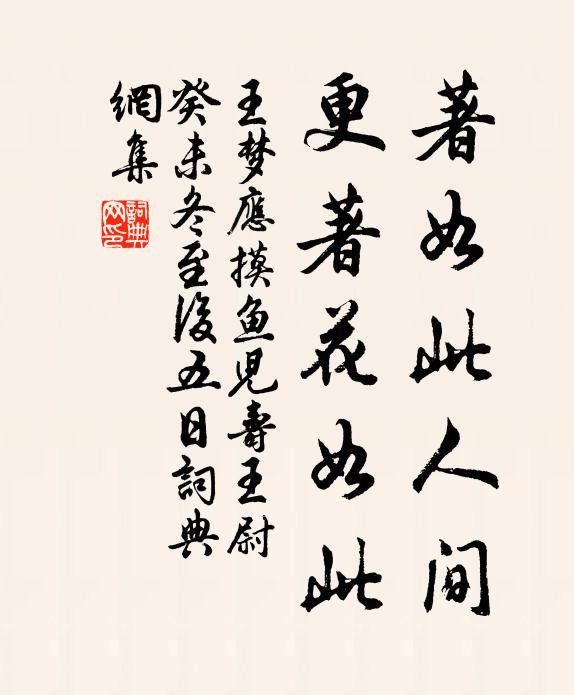 著如此人间
更著花如此
王梦應摸鱼児壽王尉
癸未冬至後五日詞典
網集
詞典网印